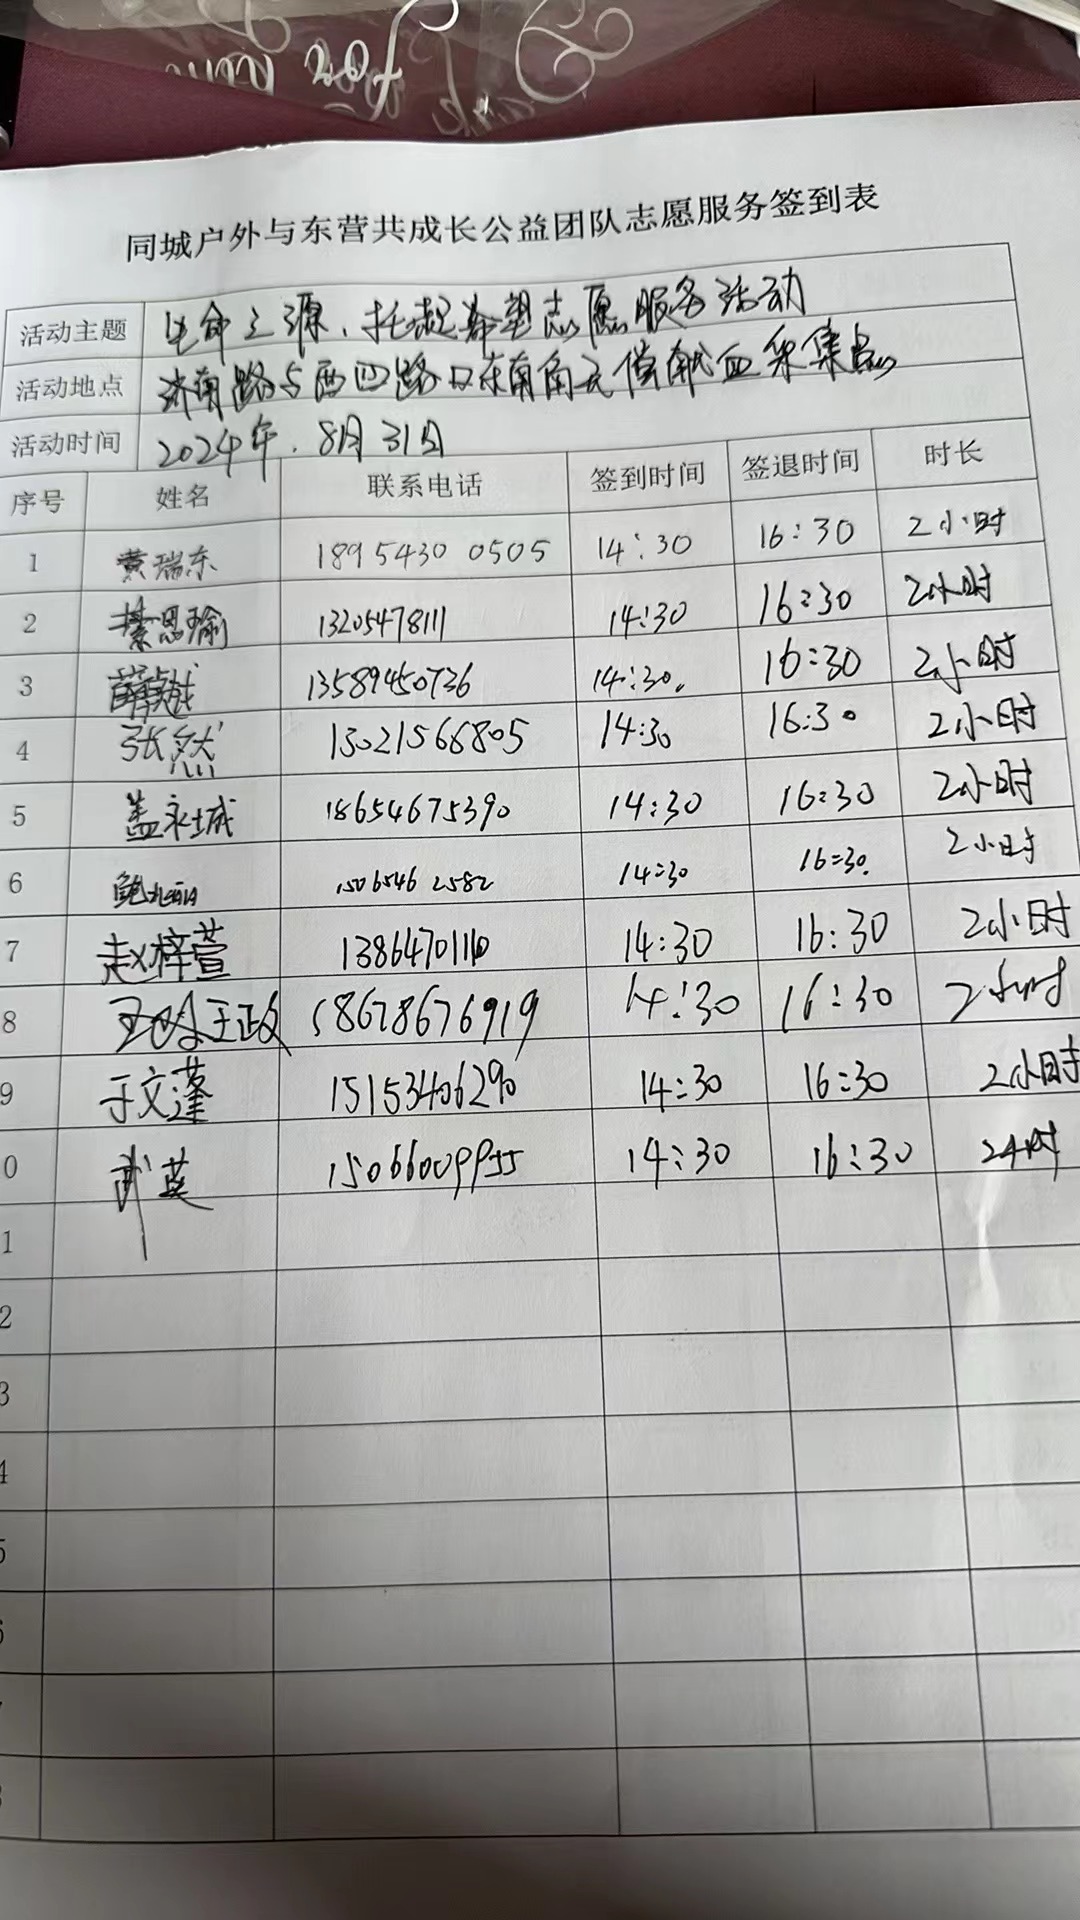 for
同城户外与东营共成长公益团队志愿服务签到表
活动主题 生命之源、托起希望志愿服务活动
活动地点 济南路与西四路口东南角无偿献血采集点
活动时间 2024年.8月31日
序号 姓名 联系电话 签到时间 签退时间 时长
1 黄瑞东 1895430 0505 14:30 16:30 2小时
2 綦思瑜 13205478111 14:30 16:30 2小时
3 13589450736 14:30. 16:30 2小时
4 张然 15021566805 14:30 16:30 2小时
5 盖永城 18654675390 14:30 16:30 2小时
6 鲍 1506546 2582 14:30 16:30. 2小时
7 赵梓萱 14:30 16:30 2小时
8 王政 14:30 16:30 2小时
9 于文蓬 15153406290 14:30 16:30 2小时
0 武英 15066009955 14:30 16:30 2小时
1
2
3
4
5
6
7